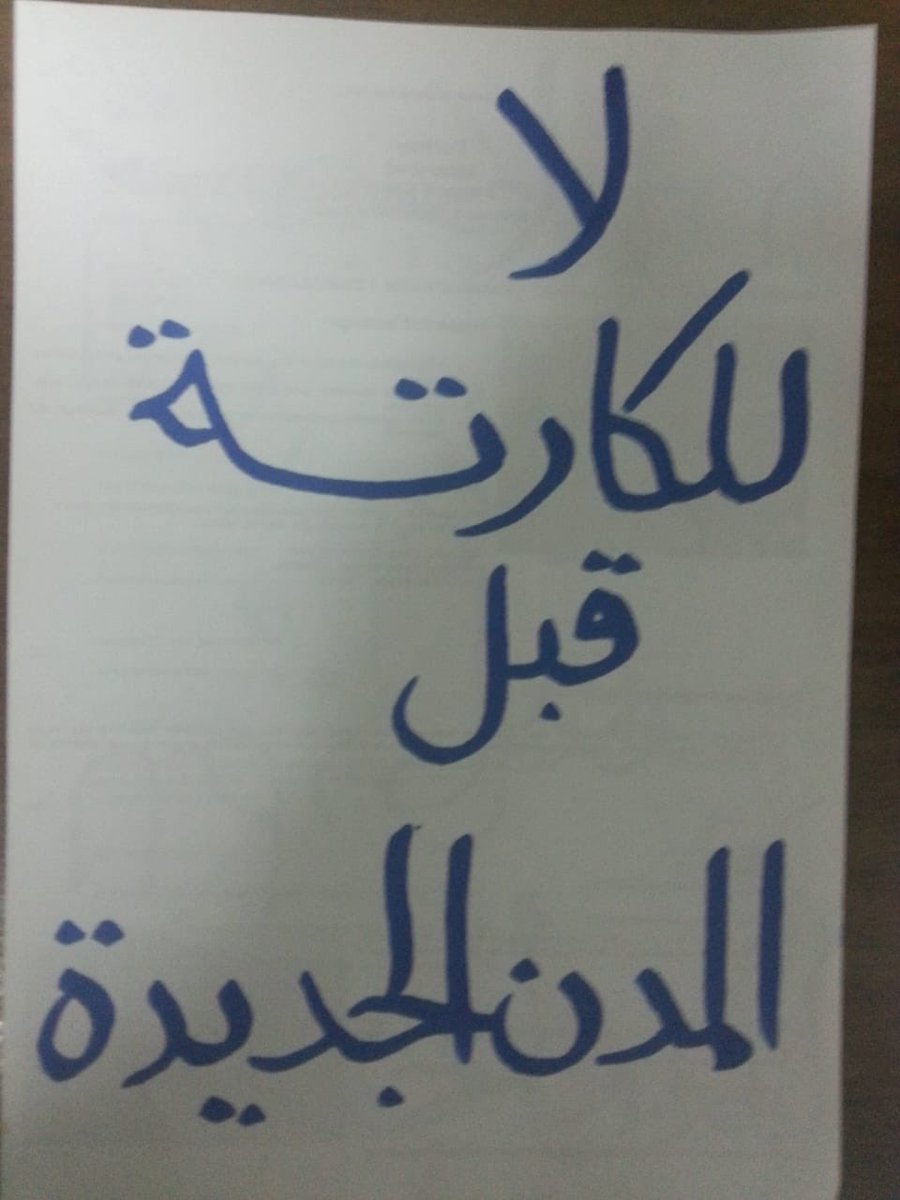 لا
للكارتة
قبل
المدن الجديدة